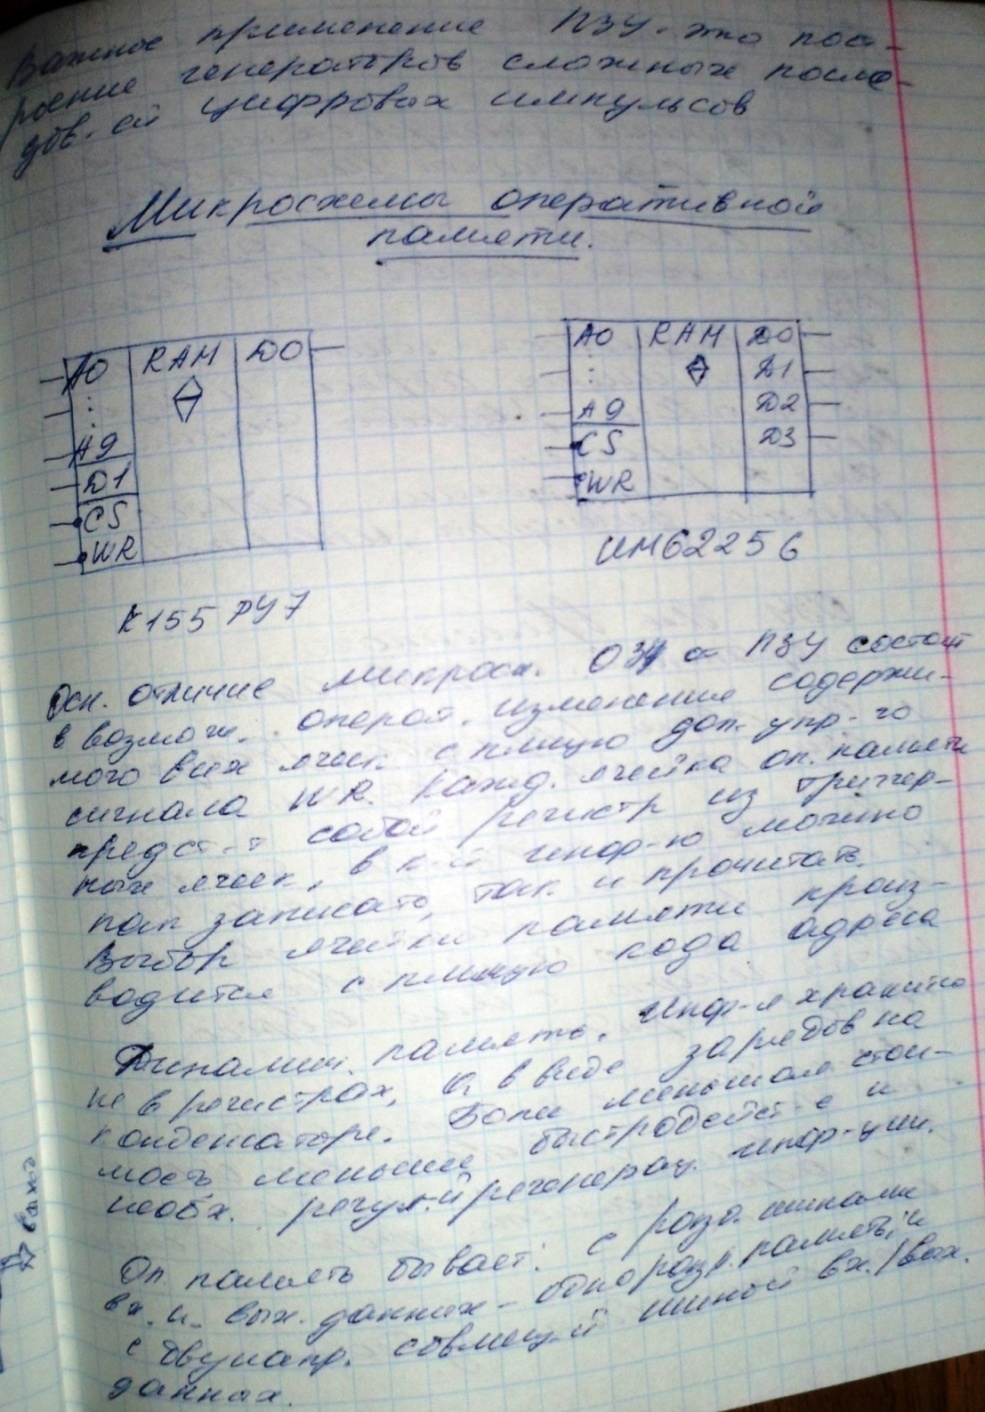 Важное применение ПЗУ - это пост-
роение генераторов сложных после-
дов-ей цифровых импульсов
Микросхемы оперативной
памяти.
A0 RAM D0
⋮
A9
D1
CS
WR
К155 РУ7
A0 RAM D0
⋮ D1
A9 D2
CS D3
WR
UM62256
Осн. отличие микросх. ОЗУ от ПЗУ состоит
в возможн. операт. изменение содержи-
мого всех ячеек с пмщью доп. упр-го
сигнала WR. Кажд. ячейка оп. памяти
предст-т собой регистр из триггер-
ных ячеек, в к-й инф-ю можно
как записать, так и прочитать.
Выбор ячейки памяти произ-
водится с пмщью кода адреса
Динамич. память. Инф-я хранится
не в регистрах, а в виде зарядов на
конденсаторе. Более меньшая стои-
мость меньшее быстродейст-е и
необх. регул-й регенерац. инфор-ции.
Оп. память бывает: с разд. шинами
вх. и. вых. данных - одноразр. память; и
с двунапр. совмещ-й шиной вх./вых.
данных.